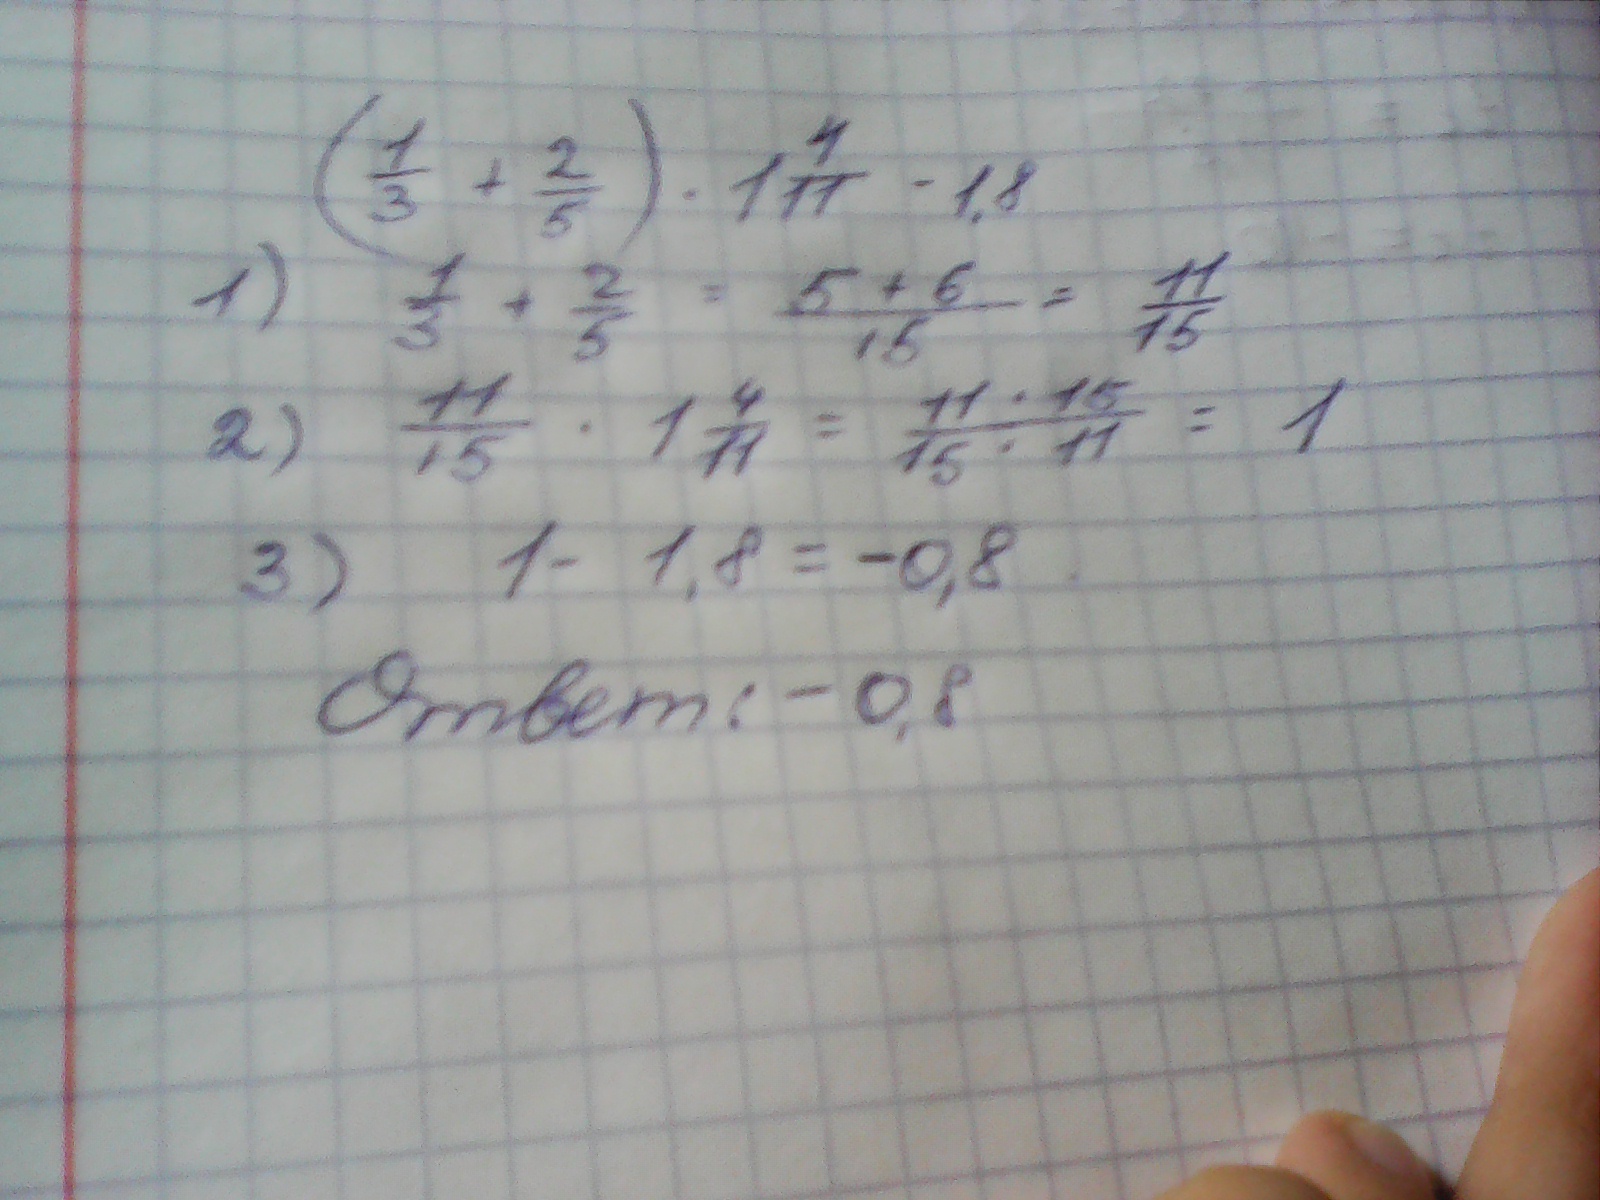 (1/3 + 2/5) · 1 4/11 - 1,8
1) 1/3 + 2/5 = (5 + 6)/15 = 11/15
2) 11/15 · 1 4/11 = (11 · 15)/(15 · 11) = 1
3) 1 - 1,8 = -0,8
Ответ: -0,8